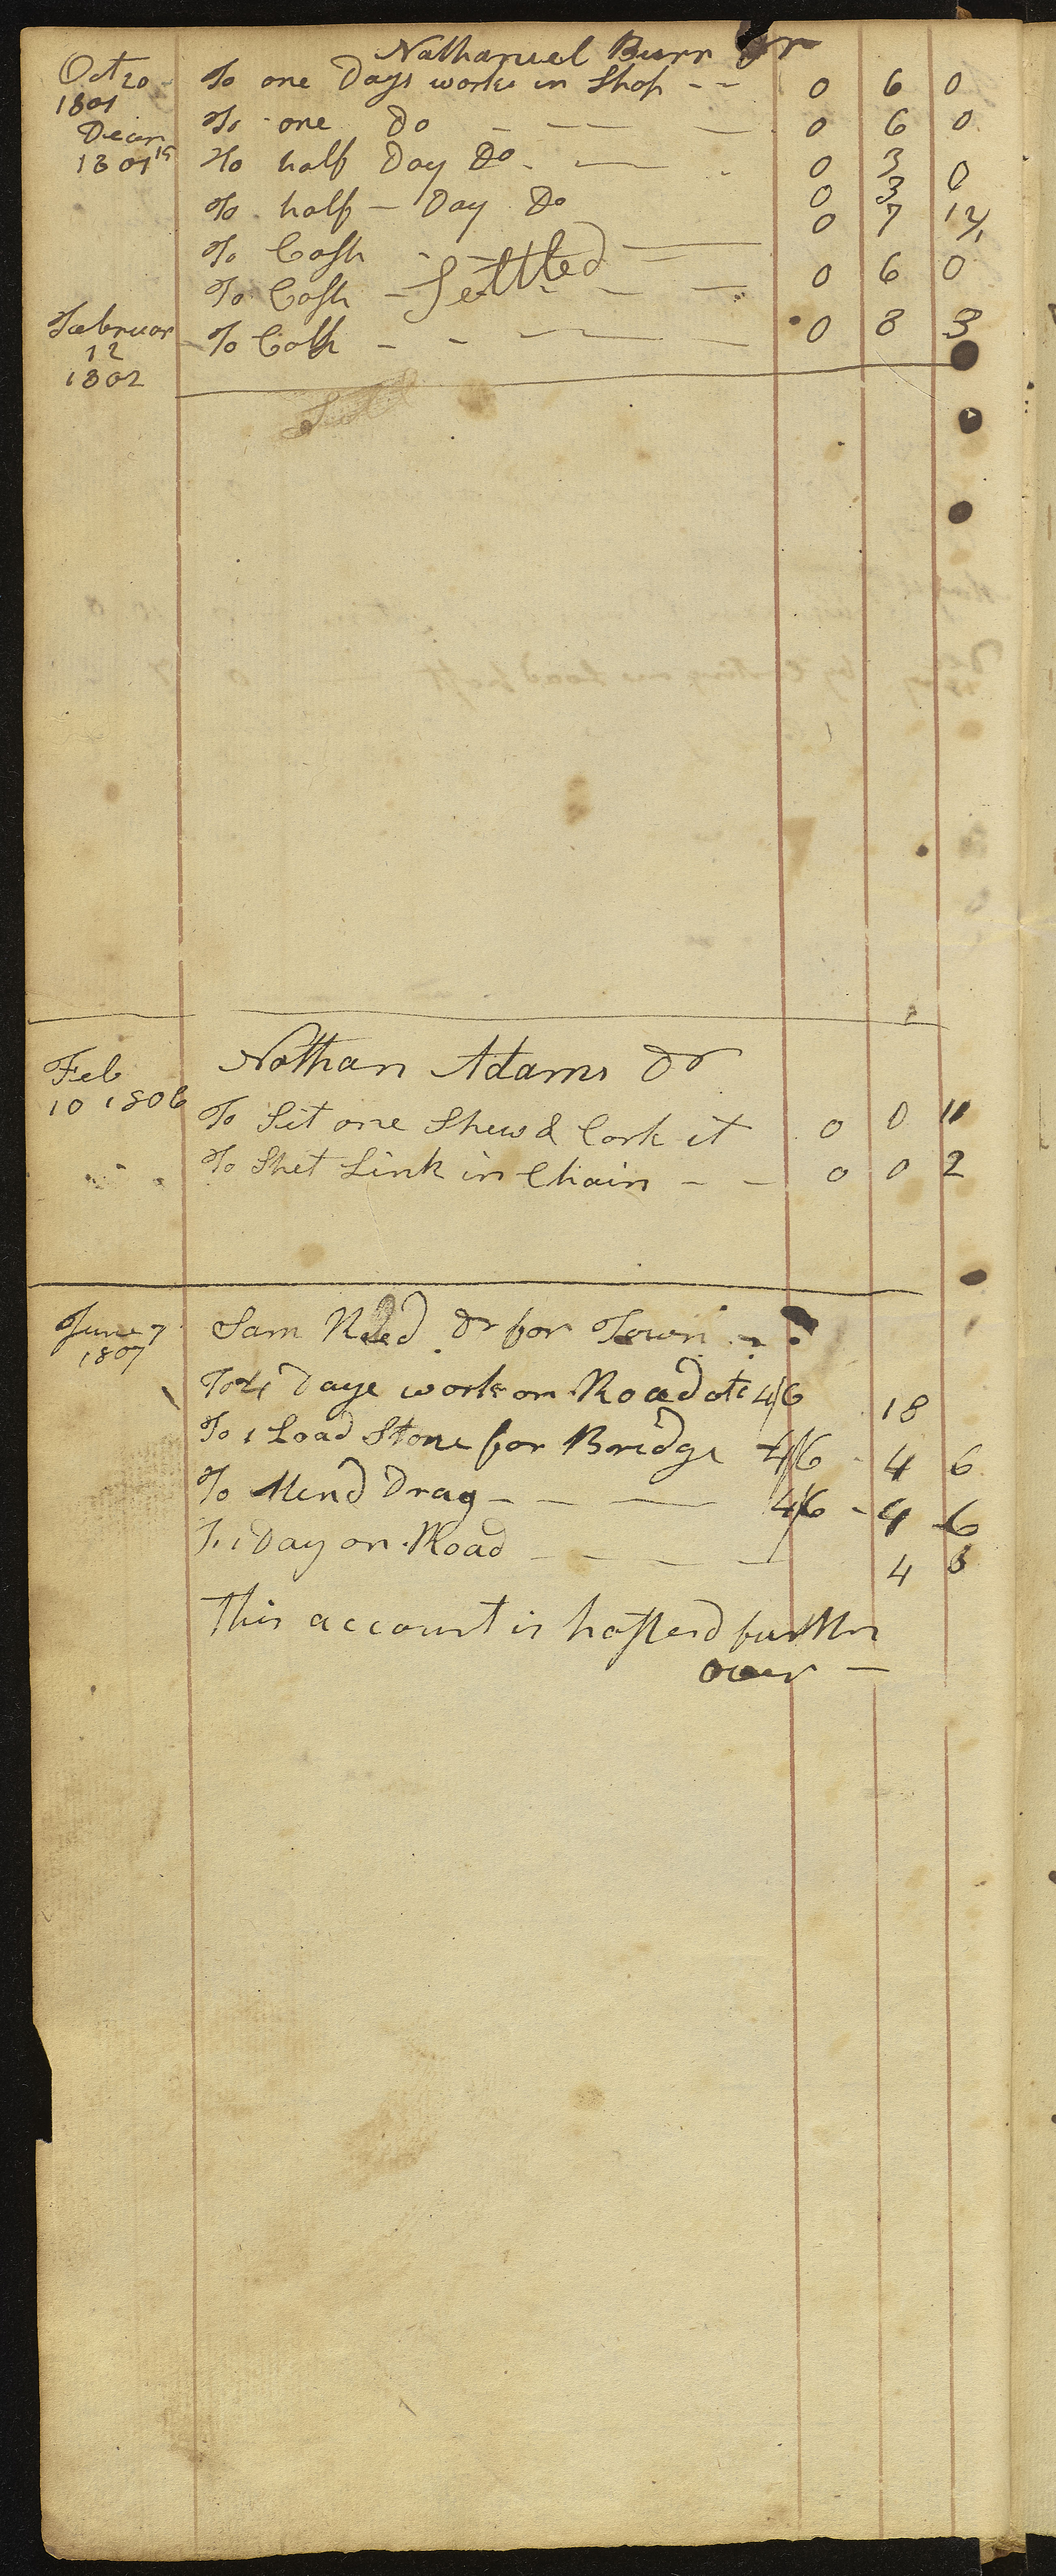 Nathanuel Burr Dr
Oct 20 To one Days works in Shop - - 0 6 0
1801
Decem To one Do - - - - 0 6 0
1801 15 To half Day Do - - 0 3 0
To half - Day Do 0 3 0
To Cash - - - 0 7
To Cash - Settled - - 0 6 0
Februar To Cash - - - - 0 8 3
12
1802
Nathan Adams Dr
Feb
10 1806
To Sit one Shew & Cork it 0 0 11
To Shet Link in Chain - - 0 0 2
June 7 Sam Reed Dr for Town
1807
To 4 Daye work on Road at 4/6 18
To 1 Load Stone for Bridge 4/6 - 4 6
To Mend Drag - - - 4/6 - 4 6
To 1 Day on Road - - - - 4 6
This account is posterd further
over -